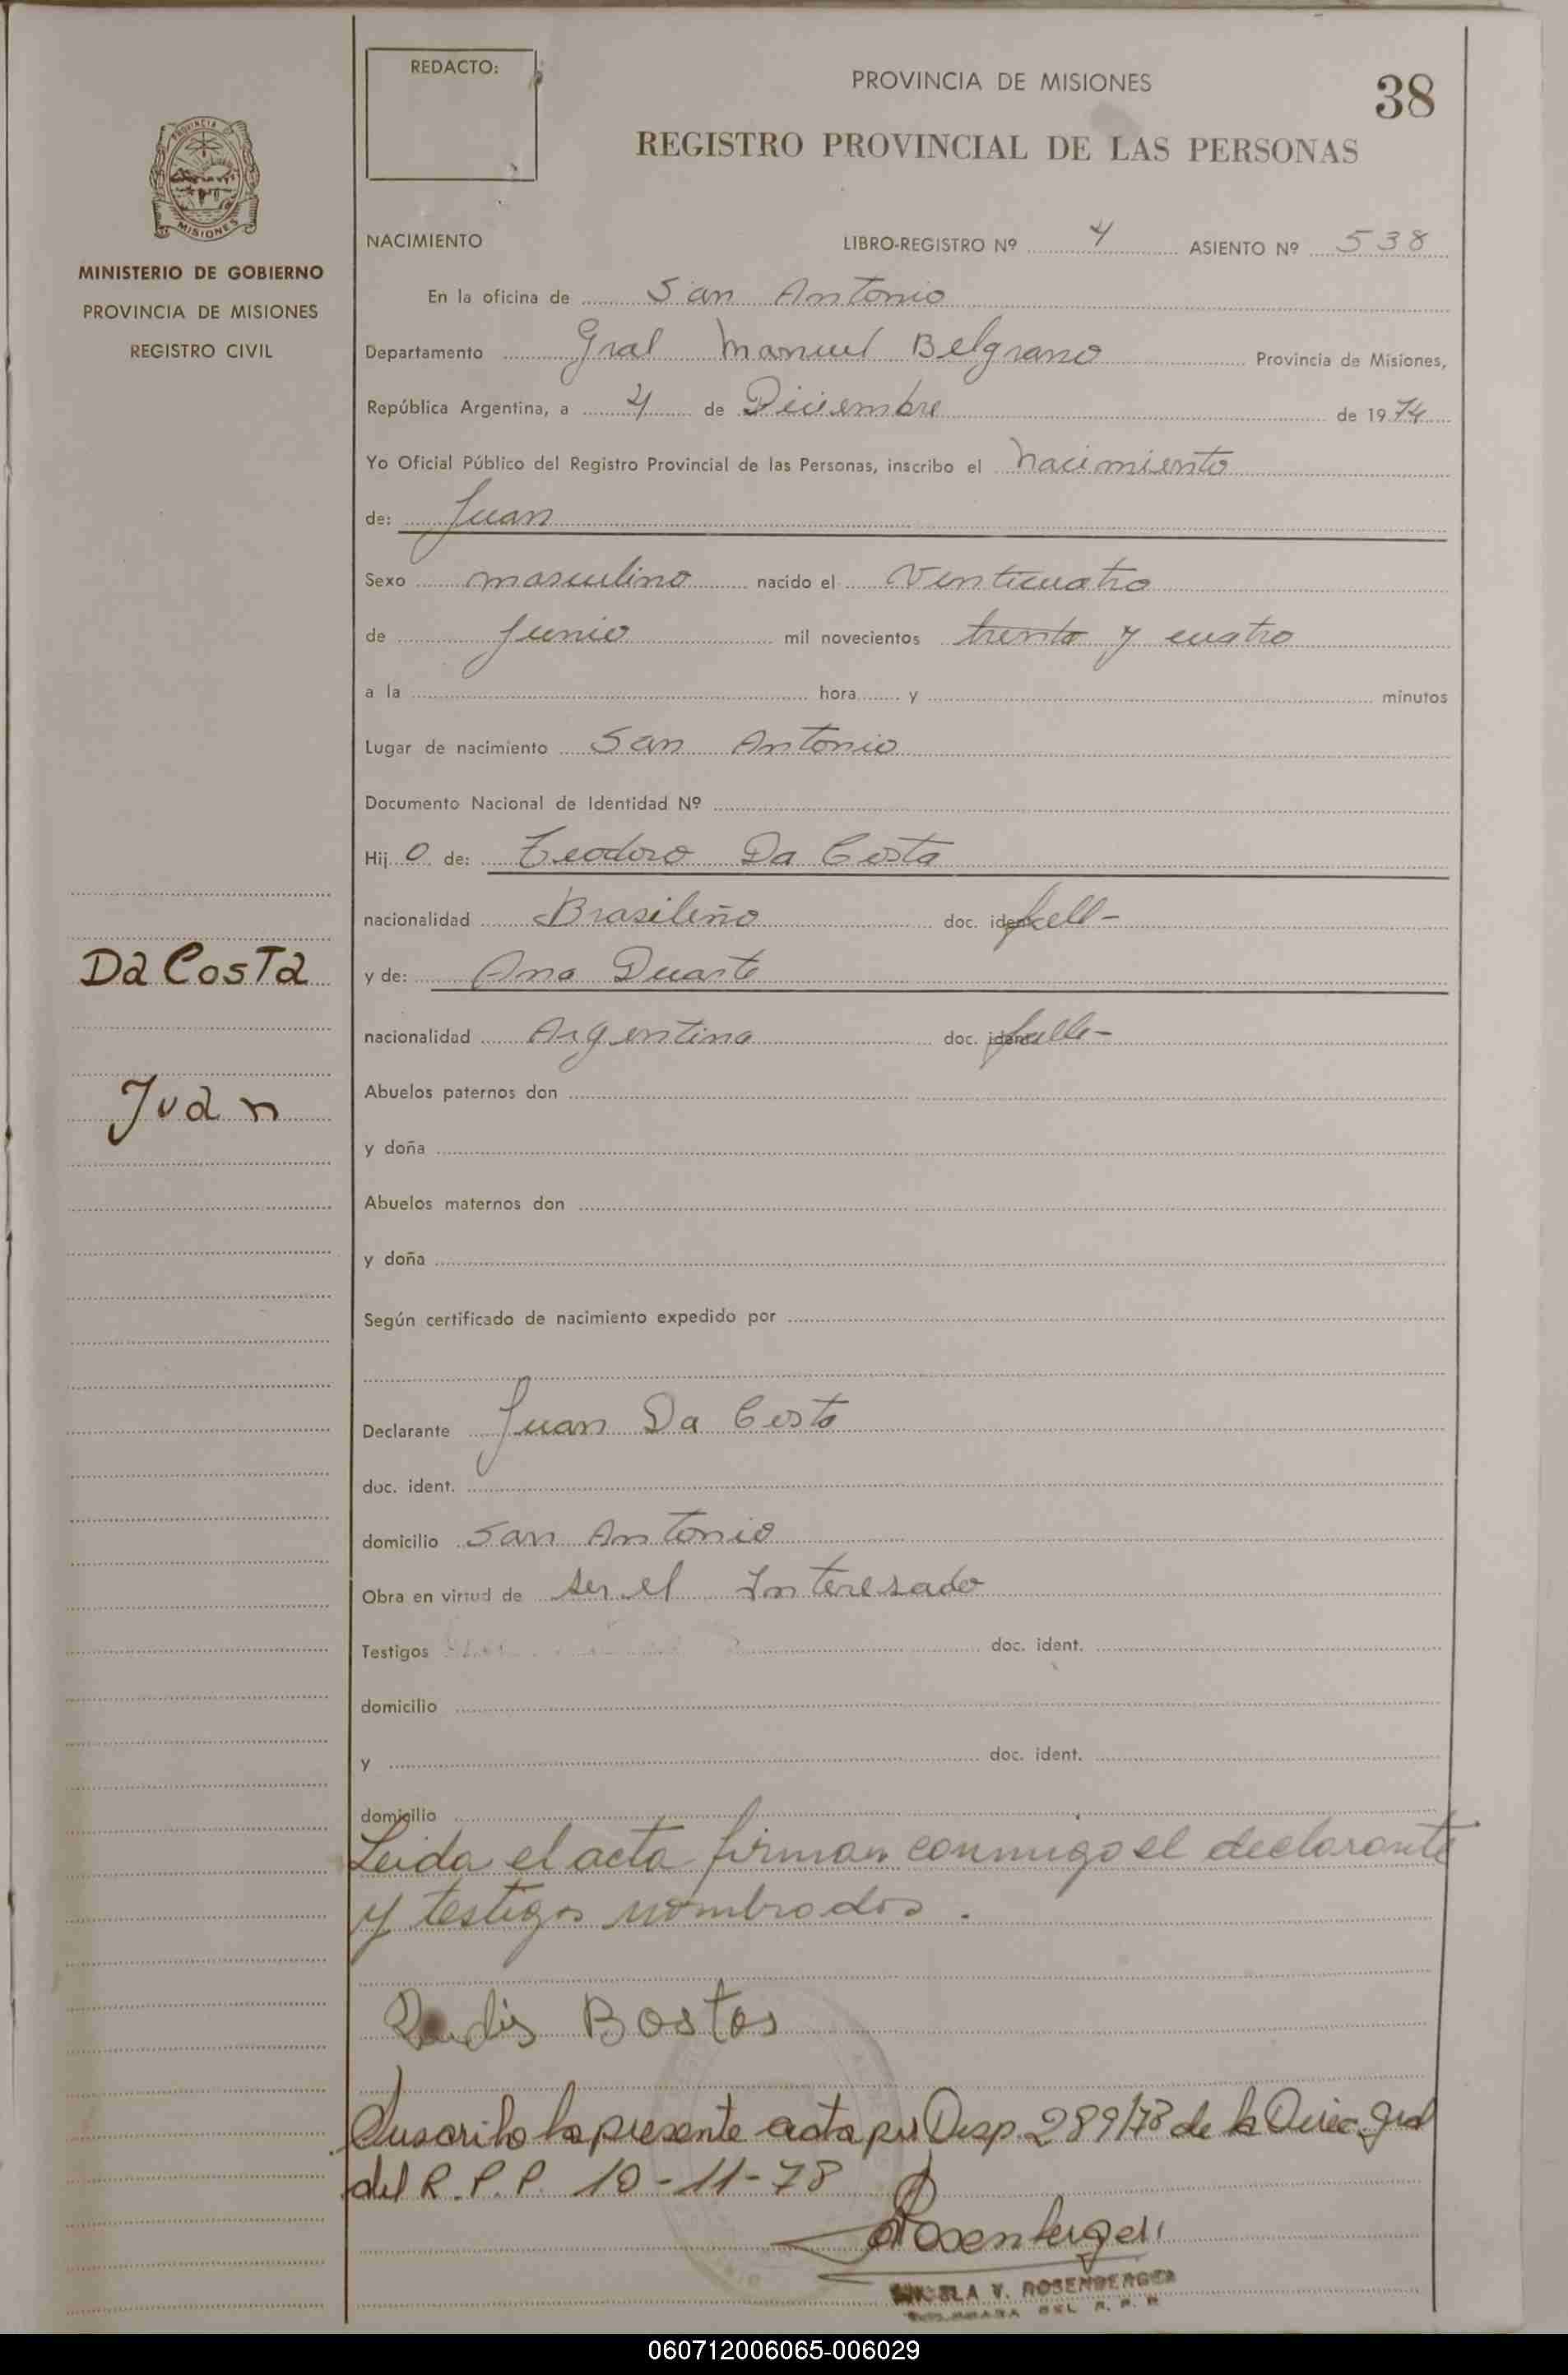 REDACTO:
PROVINCIA DE MISIONES
38
REGISTRO PROVINCIAL DE LAS PERSONAS
PROVINCIA D
MISIONES
MINISTERIO DE GOBIERNO
PROVINCIA DE MISIONES
REGISTRO CIVIL
NACIMIENTO LIBRO-REGISTRO Nº 4 ASIENTO Nº 538
En la oficina de San Antonio
Departamento Gral Manuel Belgrano Provincia de Misiones,
República Argentina, a 4 de Diciembre de 1974
Yo Oficial Público del Registro Provincial de las Personas, inscribo el nacimiento
de: Juan
Sexo masculino nacido el Venticuatro
de Junio mil novecientos trenta y cuatro
a la hora y minutos
Lugar de nacimiento San Antonio
Documento Nacional de Identidad Nº
Hijo de: Teodoro Da Costa
nacionalidad Brasileño doc. ident. fall-
Da Costa
y de: Ana Duarte
nacionalidad Argentina doc. ident. falle-
Juan
Abuelos paternos don
y doña
Abuelos maternos don
y doña
Según certificado de nacimiento expedido por
Declarante Juan Da Costa
doc. ident.
domicilio San Antonio
Obra en virtud de ser el Interesado
Testigos doc. ident.
domicilio
y doc. ident.
domicilio
Leida el acta firman conmigo el declarante
y testigos nombrados.
Bastos
Suscribo la presente acta por Disp. 289/78 de la Direc. Gral
del R.P.P. 10-11-78
Rosenberger
V. ROSENBERGER
DEL R. P. P.
060712006065-006029